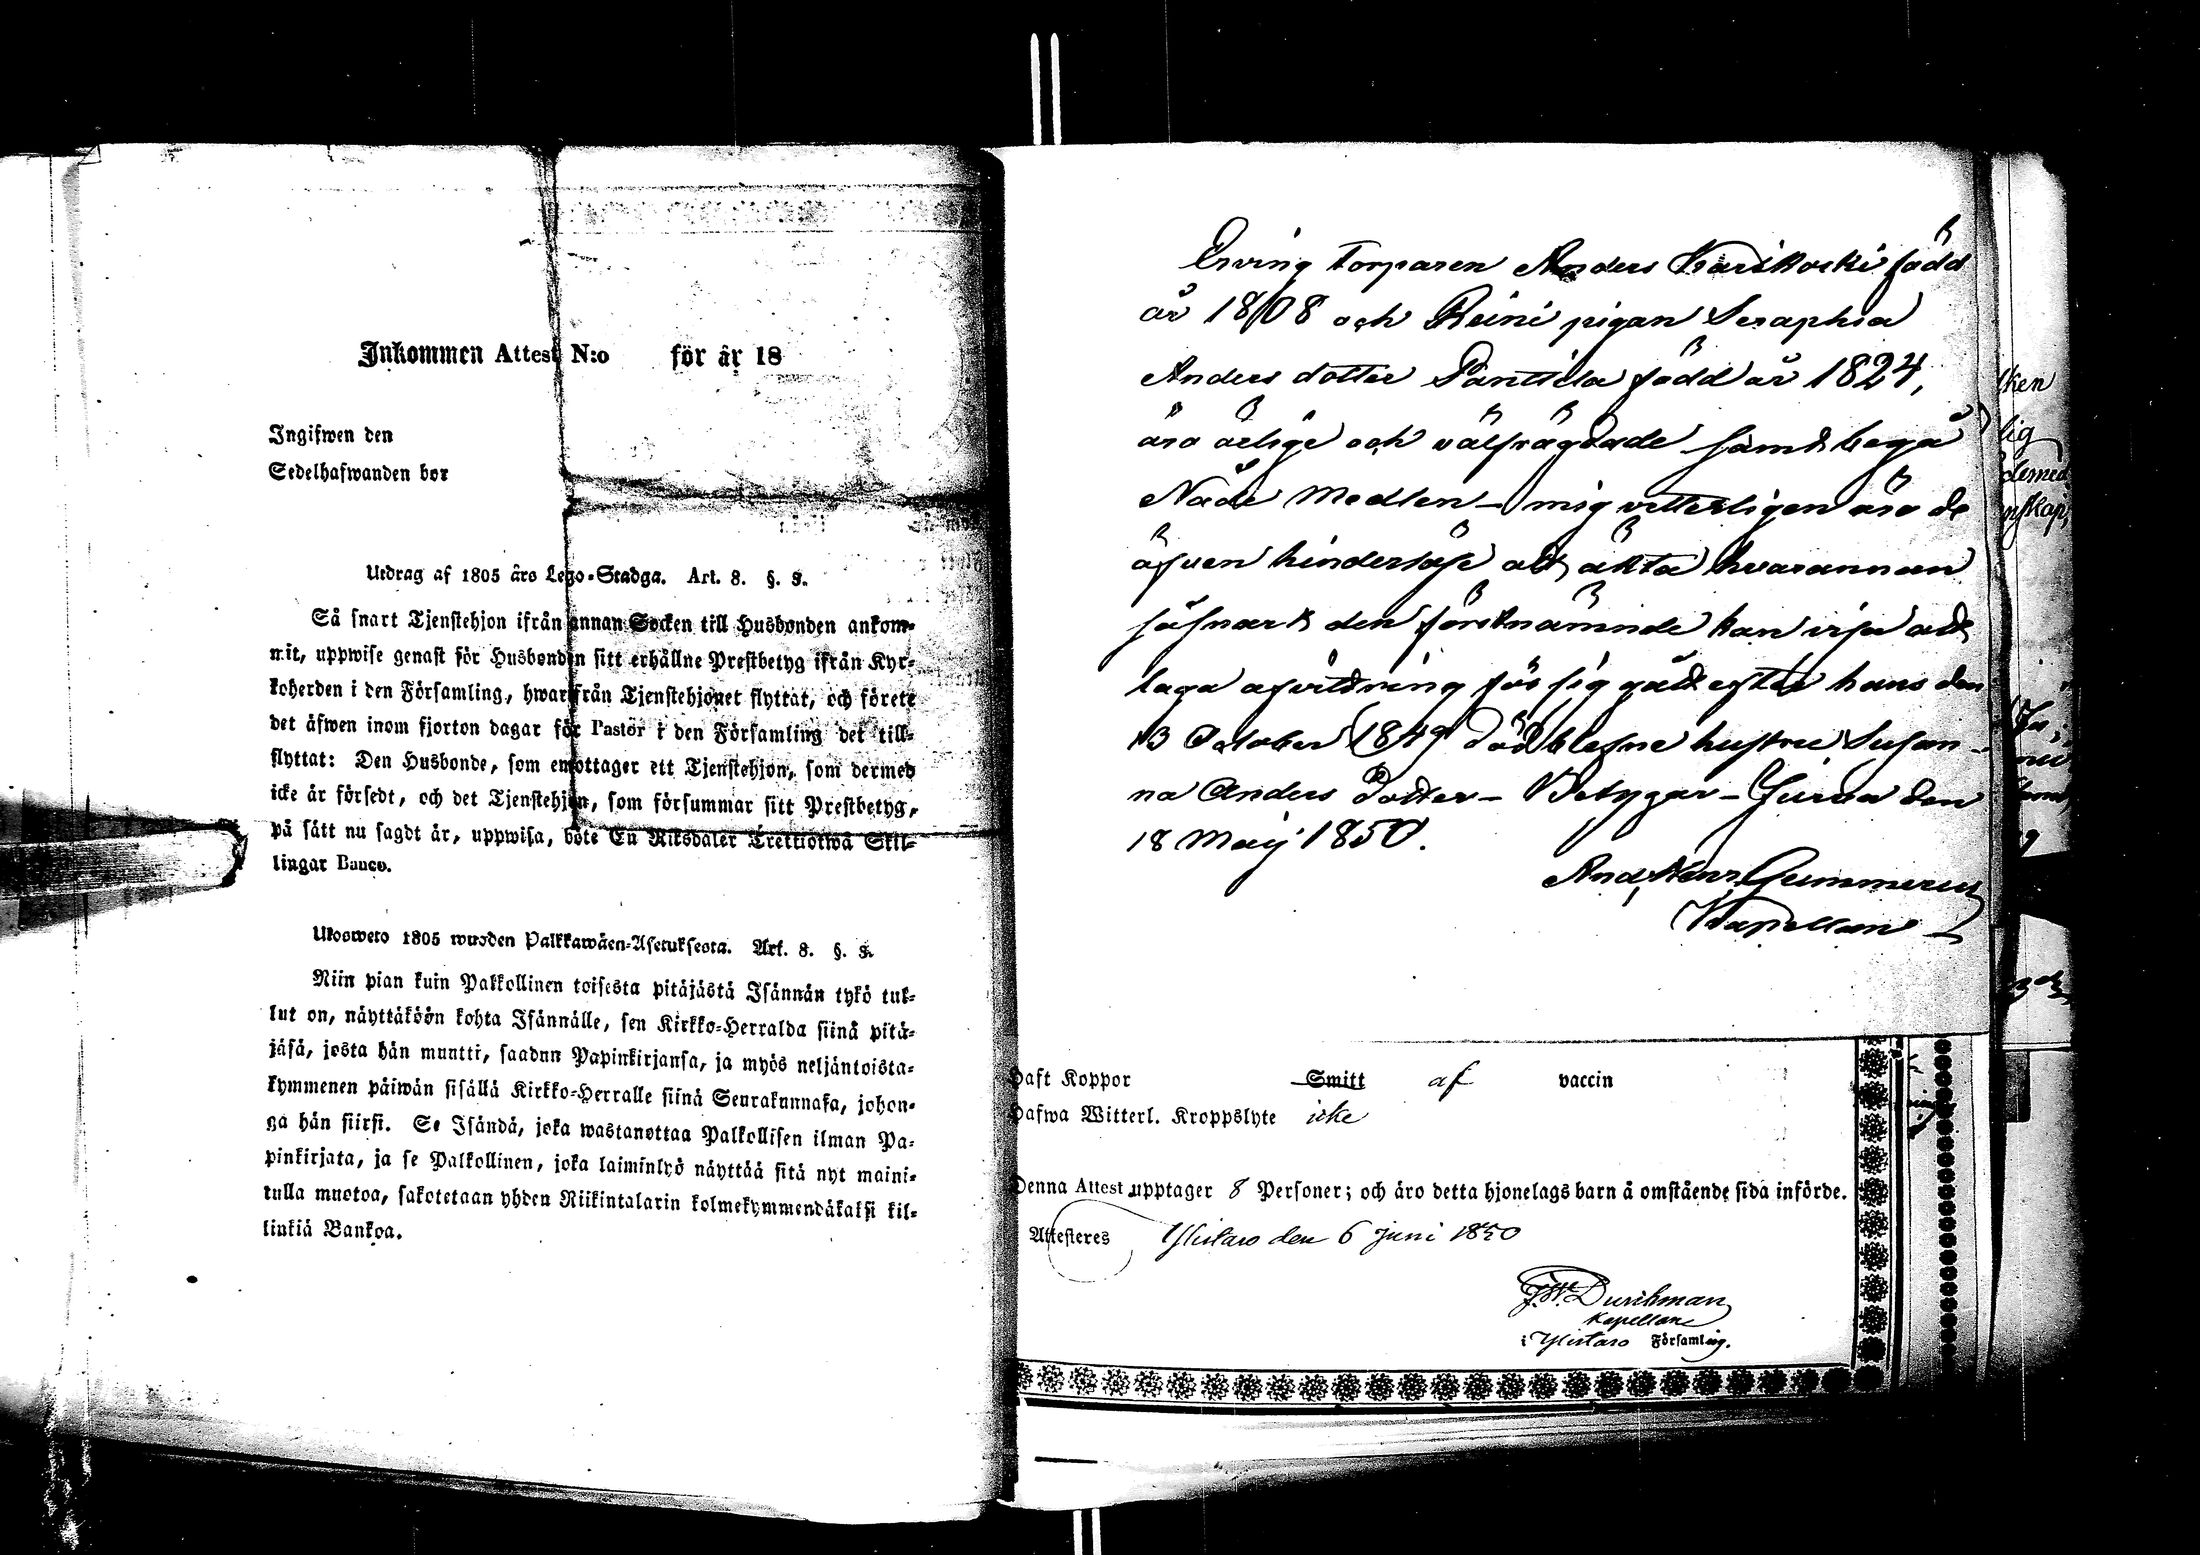 Inkommen Attest N:o för år 18
Ingifwen den
Sedelhafwanden bor
Utdrag af 1805 års Lego-Stadga. Art. 8. §. 8.
Så snart Tjenstehjon ifrån annan Socken till Husbonden ankom-
mit, uppwise genast för Husbonden sitt erhållne Prestbetyg ifrån Kyr-
koherden i den Församling, hwarifrån Tjenstehjonet flyttat, och förete
det äfwen inom fjorton dagar för Pastor i den Församling det till-
flyttat: Den Husbonde, som emottager ett Tjenstehjon, som dermed
icke är försedt, och det Tjenstehjon, som försummar sitt Prestbetyg,
på sätt nu sagdt är, uppwisa, böte En Riksdaler Trettiotwå Skil-
lingar Banco.
Ulosweto 1805 wuoden Palkkawäen-Asetuksesta. Art. 8. §. 8.
Niin pian kuin Palkollinen toisesta pitäjästä Isännän tykö tul-
lut on, näyttäköön kohta Isännälle, sen Kirkko-Herralda siinä pitä-
jäsä, josta hän muutti, saadun Papinkirjansa, ja myös neljäntoista-
kymmenen päiwän sisällä Kirkko-Herralle siinä Seurakunnasa, johon-
ga hän siirsi. Se Isändä, joka wastanottaa Palkollisen ilman Pa-
pinkirjata, ja se Palkollinen, joka laiminlyö näyttää sitä nyt maini-
tulla muotoa, sakotetaan yhden Riikintalarin kolmekymmendäkaksi kil-
linkiä Bankoa.
Enving torparen Anders Kariskoski född
år 1808 och Reini pigan Seraphia
Anders dotter Panttila född år 1824,
äro ärlige och välfrägdade samt begå
Nåde Medlen – mig vetterligen äro de
äfven hinderlöse att äkta hvarannan
såsnart den förstnämnde kan visa att
laga afvittring för sig gått efter hans den
13 October 1849 död blefne hustru Susan-
na Anders dotter – Betygar – Jurva den
18 Maij 1850.
And. Henr. Gummerus
Kapellan
Haft Koppor Smitt af vaccin
Hafwa Witterl. Kroppslyte icke
Denna Attest upptager 8 Personer; och äro detta hjonelags barn å omstående sida införde.
Attesteres Ylistaro den 6 Juni 1850
Durchman
Kapellan
i Ylistaro Församling.